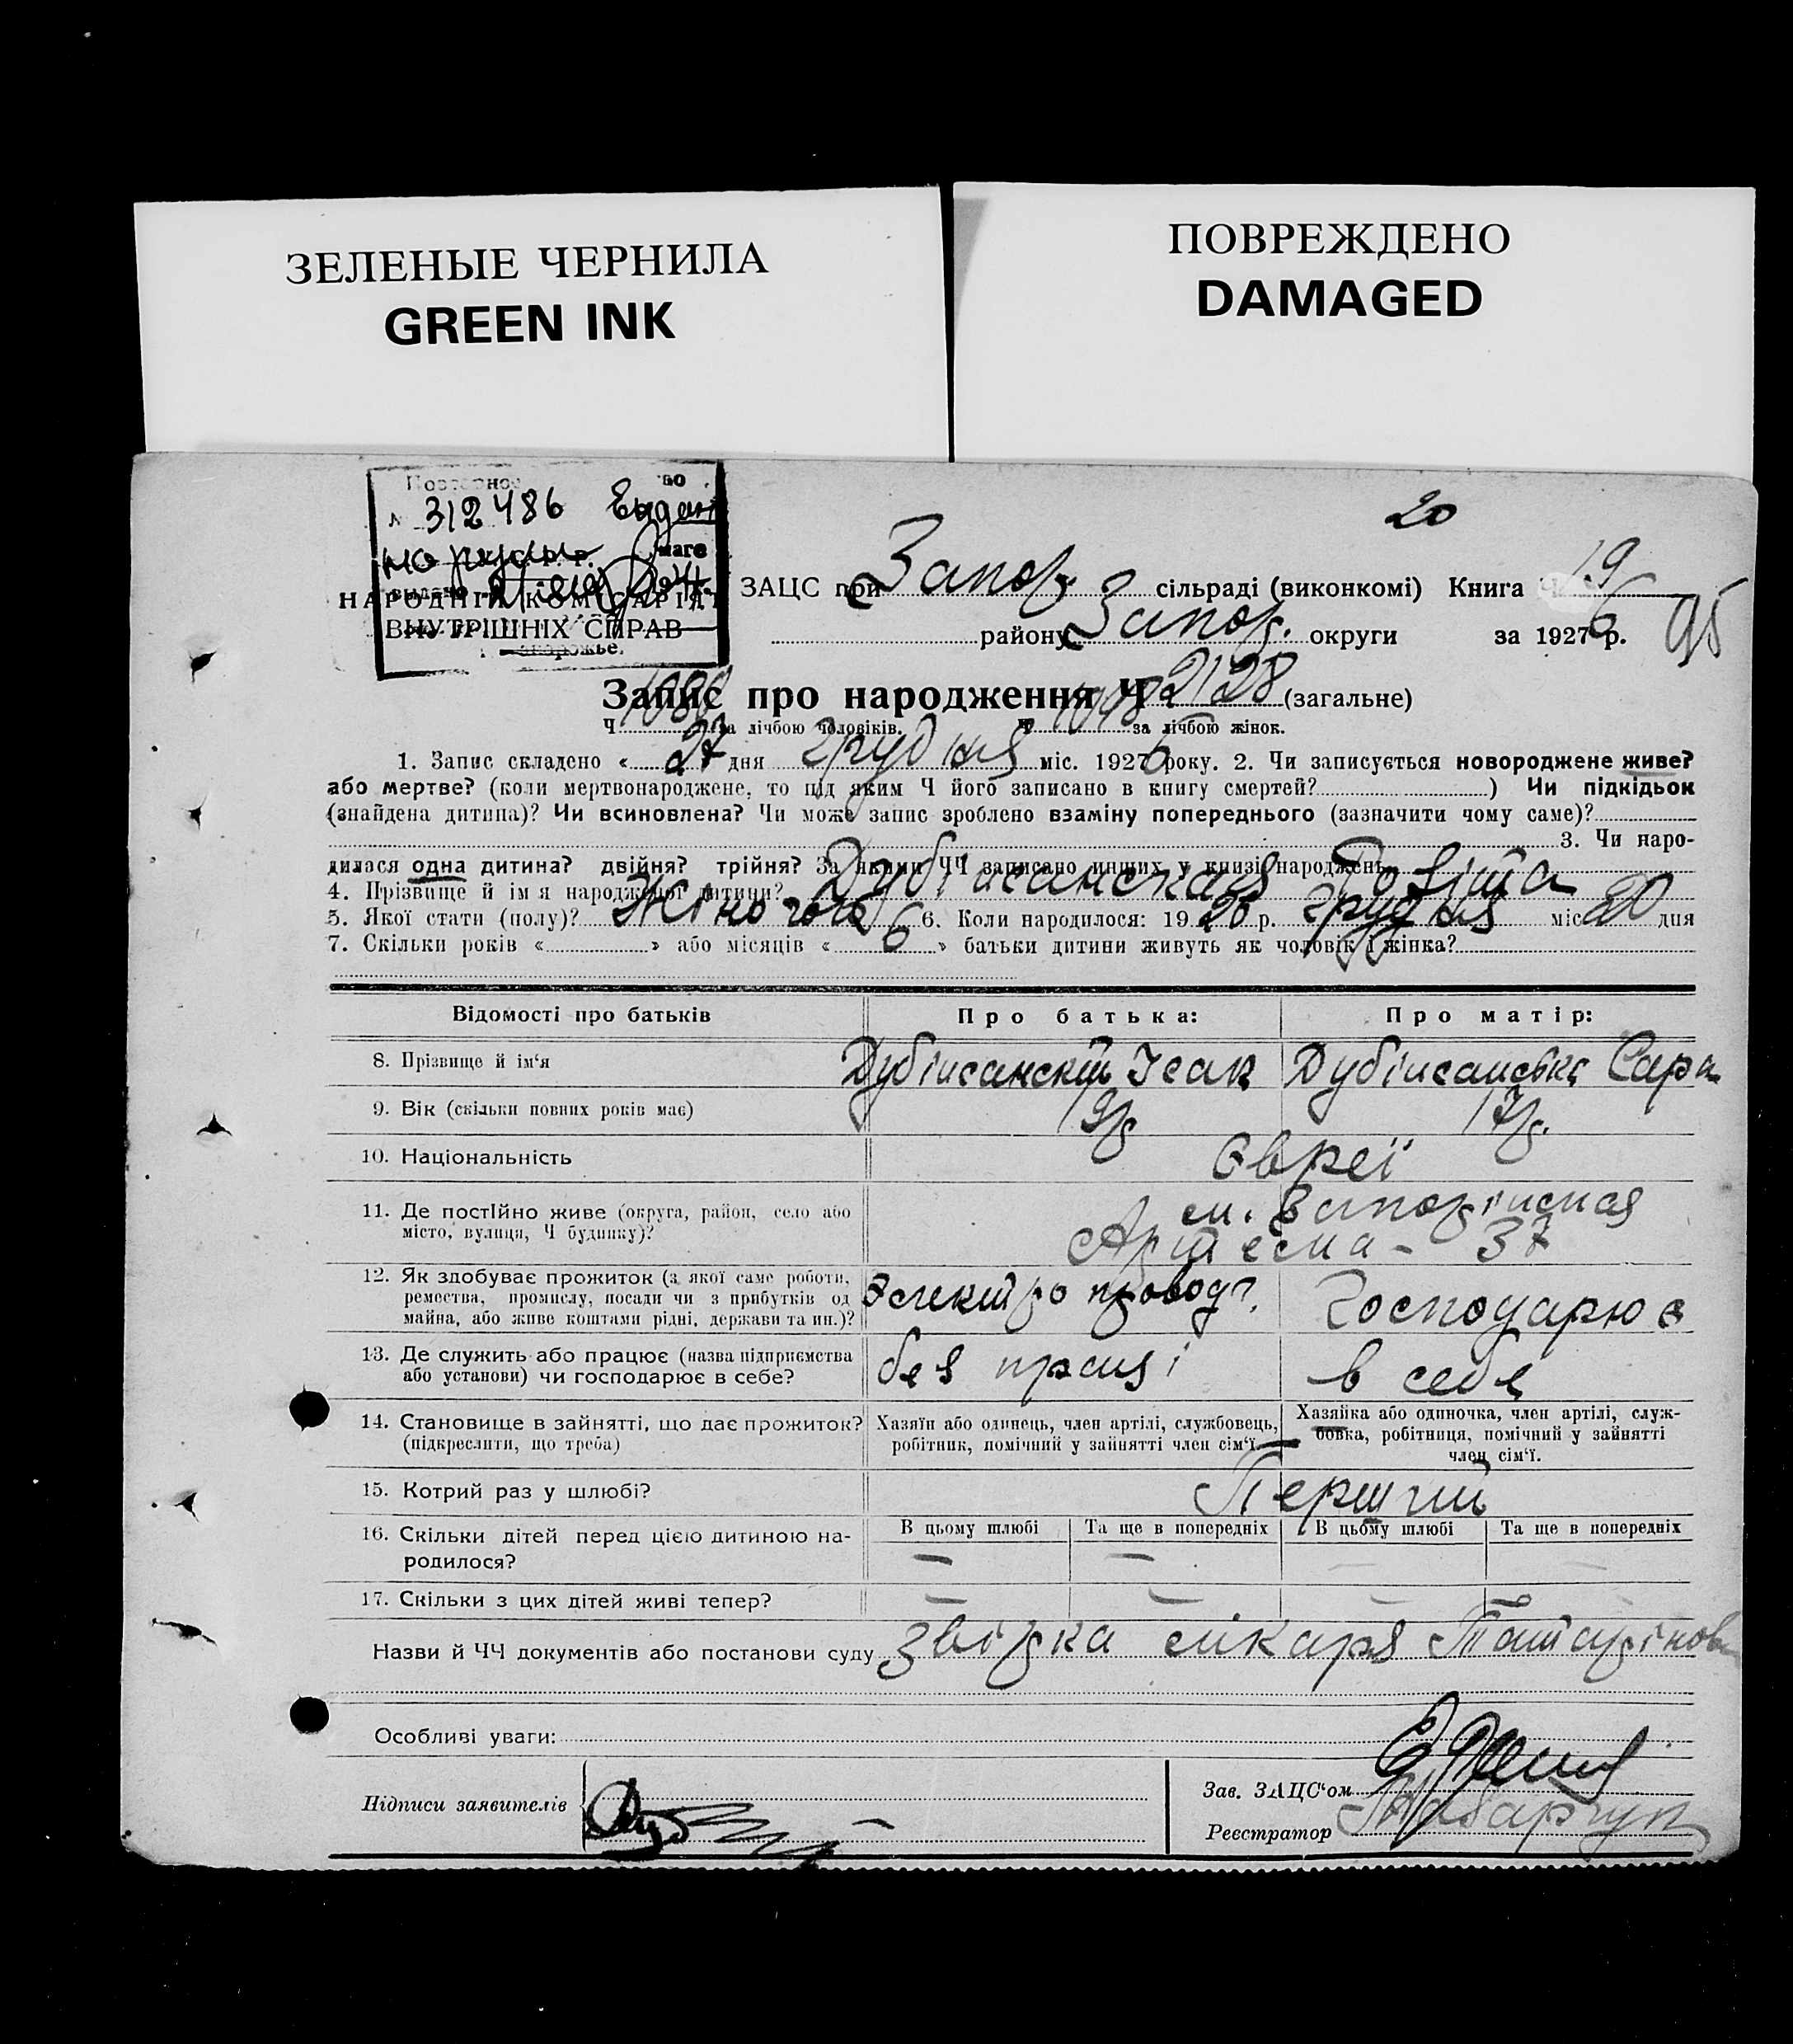 ЗЕЛЕНЫЕ ЧЕРНИЛА
GREEN INK
ПОВРЕЖДЕНО
DAMAGED
№ 312486
20
НАРОДНІЙ КОМІСАРІЯТ
ВНУТРІШНІХ СПРАВ
ЗАЦС при Запор. сільраді (виконкомі) Книга Ч 19
району Запор. округи за 1926 р. 95
Запис про народження Ч 2128 (загальне)
Ч 1080 за лічбою чоловіків. Ч 1048 за лічбою жінок.
1. Запис складено « 27 дня грудня міс. 1926 року. 2. Чи записується новороджене живе?
або мертве? (коли мертвонароджене, то під яким Ч його записано в книгу смертей? ) Чи підкідьок
(знайдена дитина)? Чи всиновлена? Чи може запис зроблено взаміну попереднього (зазначити чому саме)?
3. Чи наро-
дилася одна дитина? двійня? трійня? За якими ЧЧ записано инших у книзі народжень
4. Прізвище й ім'я народженої дитини?
5. Якої стати (полу)? Жіночого 6. Коли народилося: 1926 р. грудня міс 20 дня
7. Скільки років « » або місяців « 6 » батьки дитини живуть як чоловік і жінка?
Відомості про батьків Про батька: Про матір:
8. Прізвище й ім'я Ісак Сара
9. Вік (скільки повних років має) 19 р 17 р.
10. Національність Євреї
11. Де постійно живе (округа, район, село або
місто, вулиця, Ч будинку)?
Артема - 37
12. Як здобуває прожиток (з якої саме роботи,
ремества, промислу, посади чи з прибутків од
майна, або живе коштами рідні, держави та ин.)?
Електропровод Господарює
13. Де служить або працює (назва підприємства
або установи) чи господарює в себе?
без праці в себе
14. Становище в зайнятті, що дає прожиток?
(підкреслити, що треба)
Хазяїн або одинець, член артілі, службовець,
робітник, помічний у зайнятті член сім'ї.
Хазяйка або одиночка, член артілі, служ-
бовка, робітниця, помічний у зайнятті
член сім'ї.
15. Котрий раз у шлюбі? Перший
16. Скільки дітей перед цією дитиною на-
родилося?
В цьому шлюбі Та ще в попередніх В цьому шлюбі Та ще в попередніх
— —
17. Скільки з цих дітей живі тепер? — — — —
Назви й ЧЧ документів або постанови суду звідка лікаря
Особливі уваги:
Підписи заявителів
Зав. ЗАЦС'ом
Реєстратор